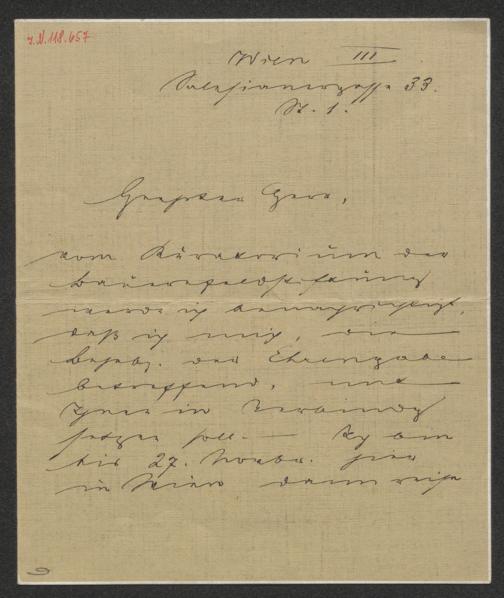 J.N. 118.657
Wien III
Salesianergasse 33.
St. 1.
Geehrter Herr,
vom Kuratorium der
Bauernfeldstiftung
werde ich benachrichtigt,
daß ich mich, die
Beheb. der Ehrengabe
betreffend, mit
Ihnen in Verbindg
setzen soll. — Ich bin
bis 27. Novbr. hier
in Wien dann reise